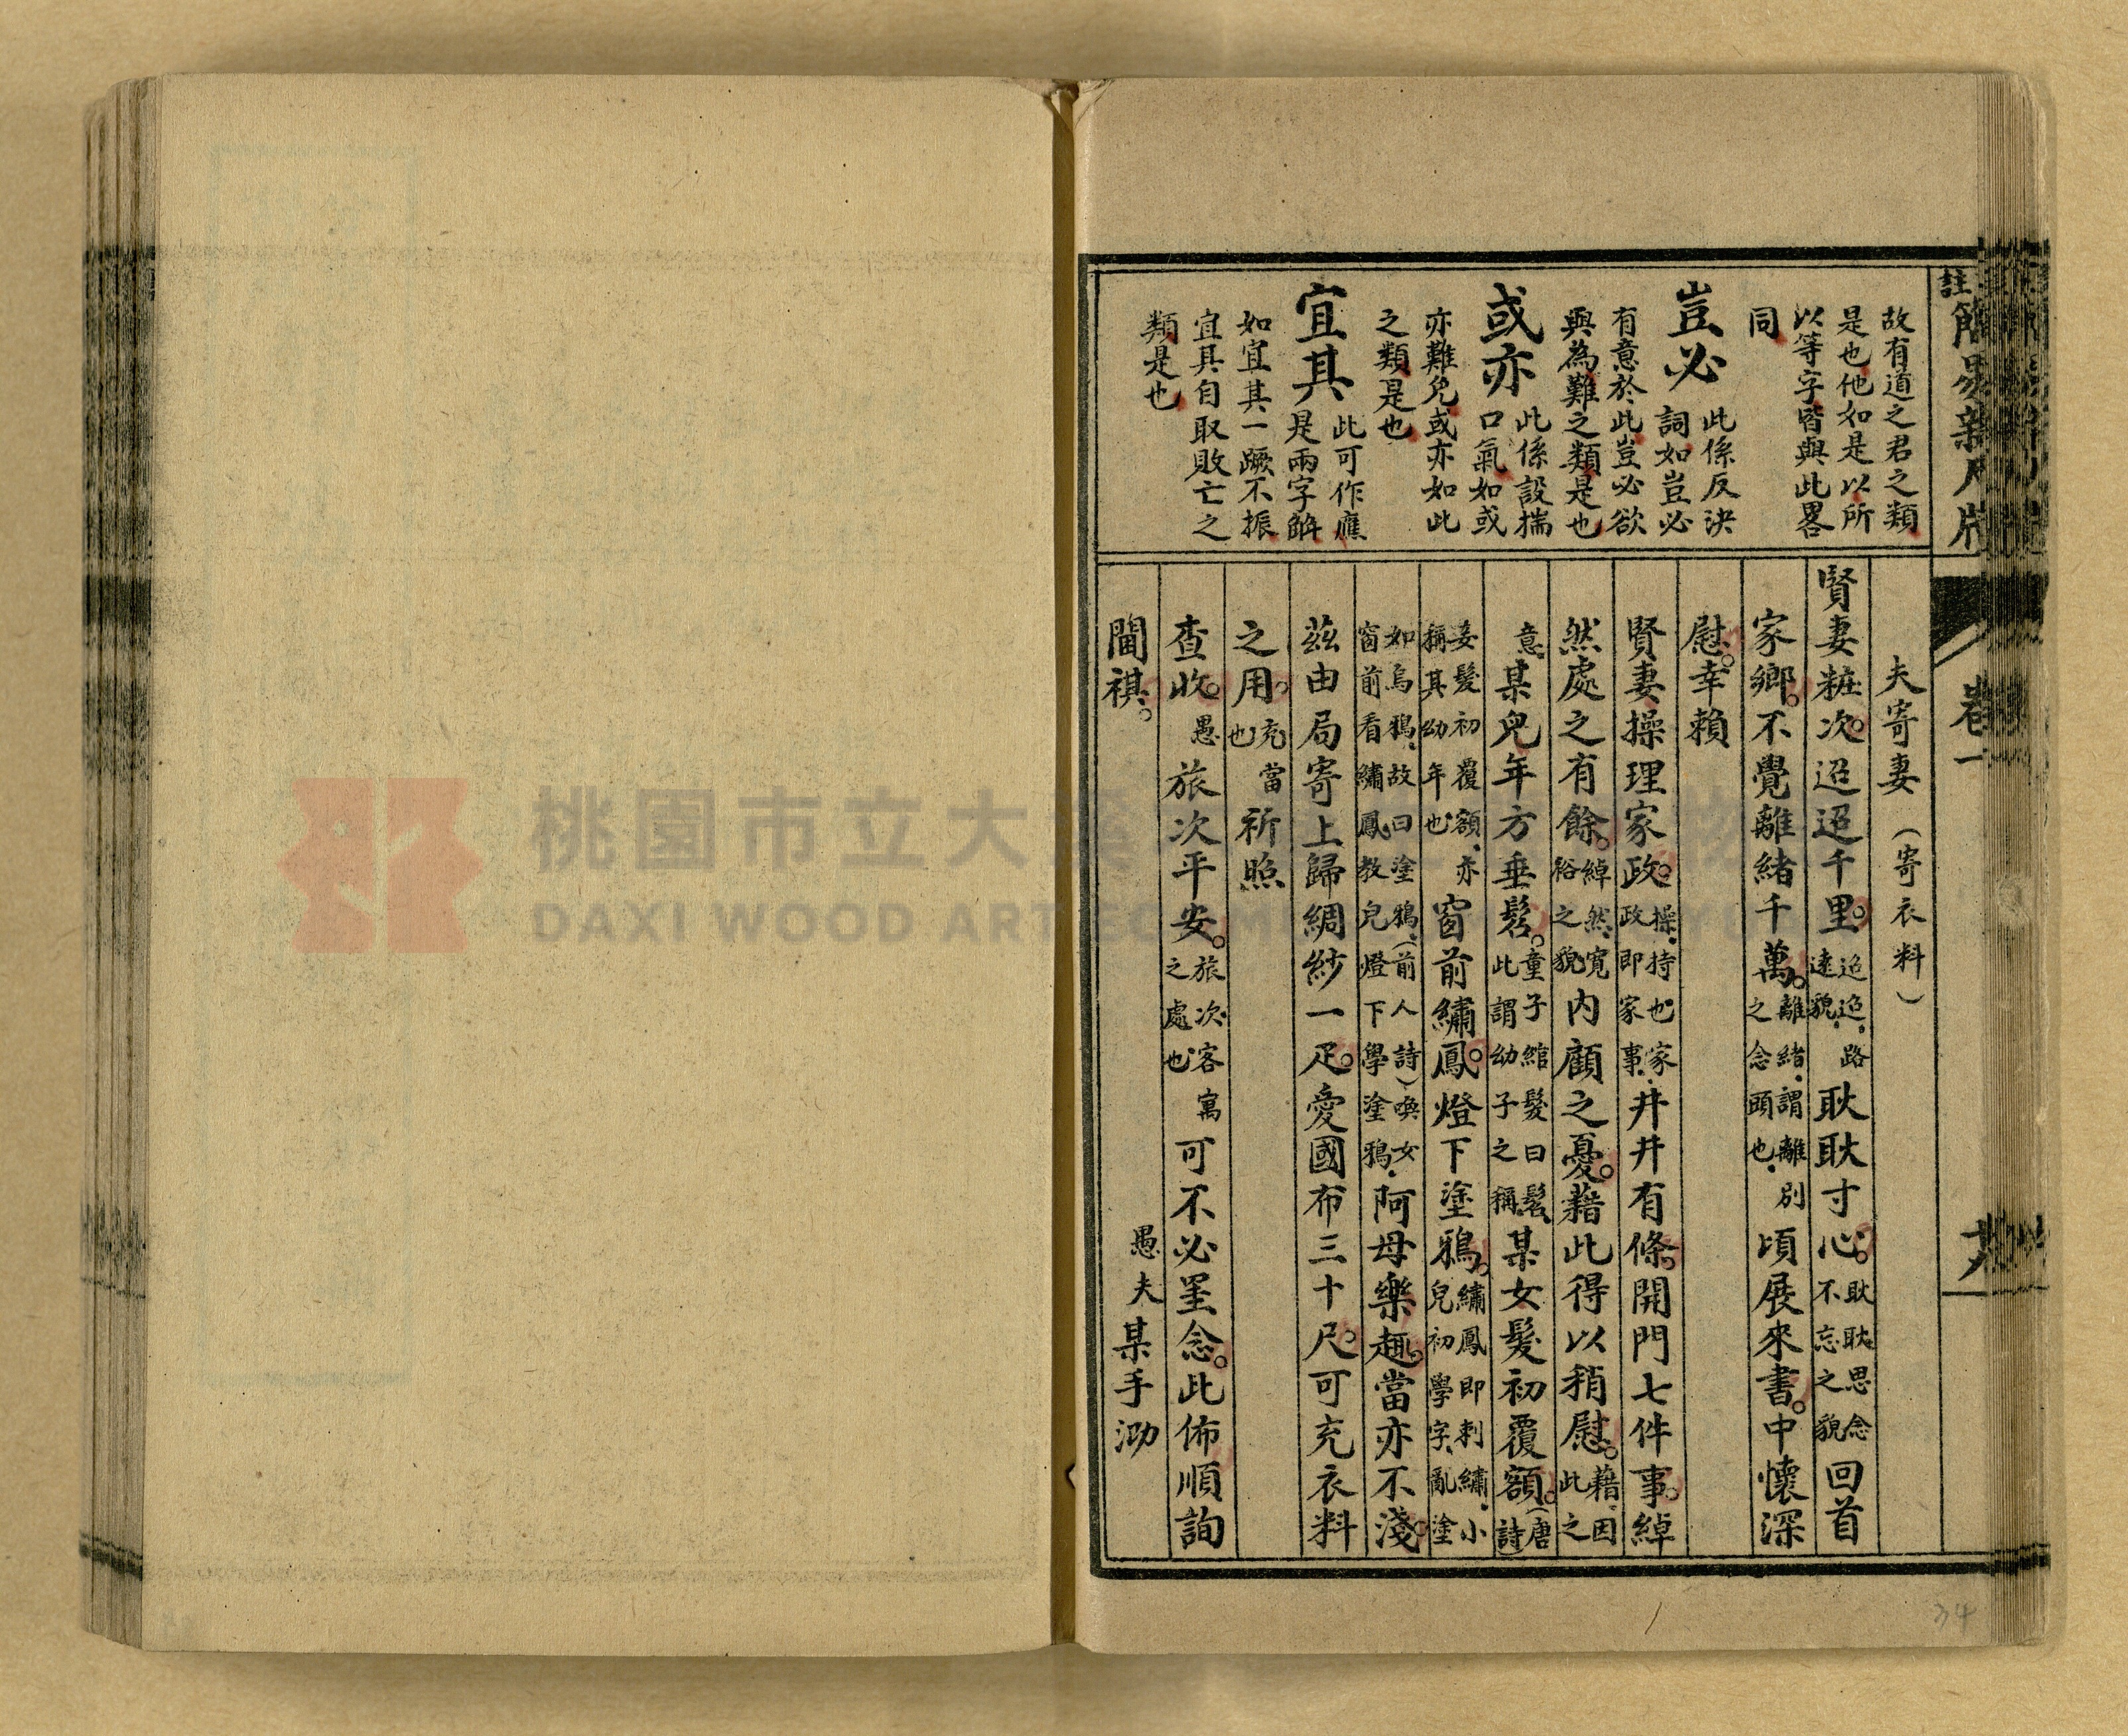 故有道之君之類
是也他如是以所
以等字皆與此畧
同
豈必 此係反決
詞如豈必
有意於此豈必欲
與為難之類是也
或亦 此係設揣
口氣如或
亦難免或亦如此
之類是也
宜其 此可作應
是兩字解
如宜其一蹶不振
宜其自取敗亡之
類是也
卷一
夫寄妻（寄衣料）
賢妻粧次。迢迢千里。迢迢，路遠貌，耿耿寸心。耿耿思念不忘之貌回首
家鄉。不覺離緒千萬。離緒，謂離別之念頭也，頃展來書。中懷深
慰。幸賴
賢妻操理家政。操，持也，家政即家事，井井有條。開門七件事。綽
然處之有餘。綽然，寬裕之貌內顧之憂。藉此得以稍慰。藉，因此之
意某兒年方垂髫。童子綰髮曰髫，此謂幼子之稱某女髮初覆額。（唐詩）
妾髮初覆額，亦稱其幼年也窗前繡鳳。燈下塗鴉。繡鳳即刺繡，小兒初學字，亂塗
如烏鴉，故曰塗鴉，（前人詩）喚女窗前看繡鳳教兒燈下學塗鴉，阿母樂趣。當亦不淺。
茲由局寄上歸綢紗一疋。愛國布三十尺。可充衣料
之用。充當也祈照
查收。愚旅次平安。旅次，客寓之處也可不必罣念。此佈順詢
閫祺。
愚夫某手泐
34
桃園市立大
DAXI WOOD ART EC